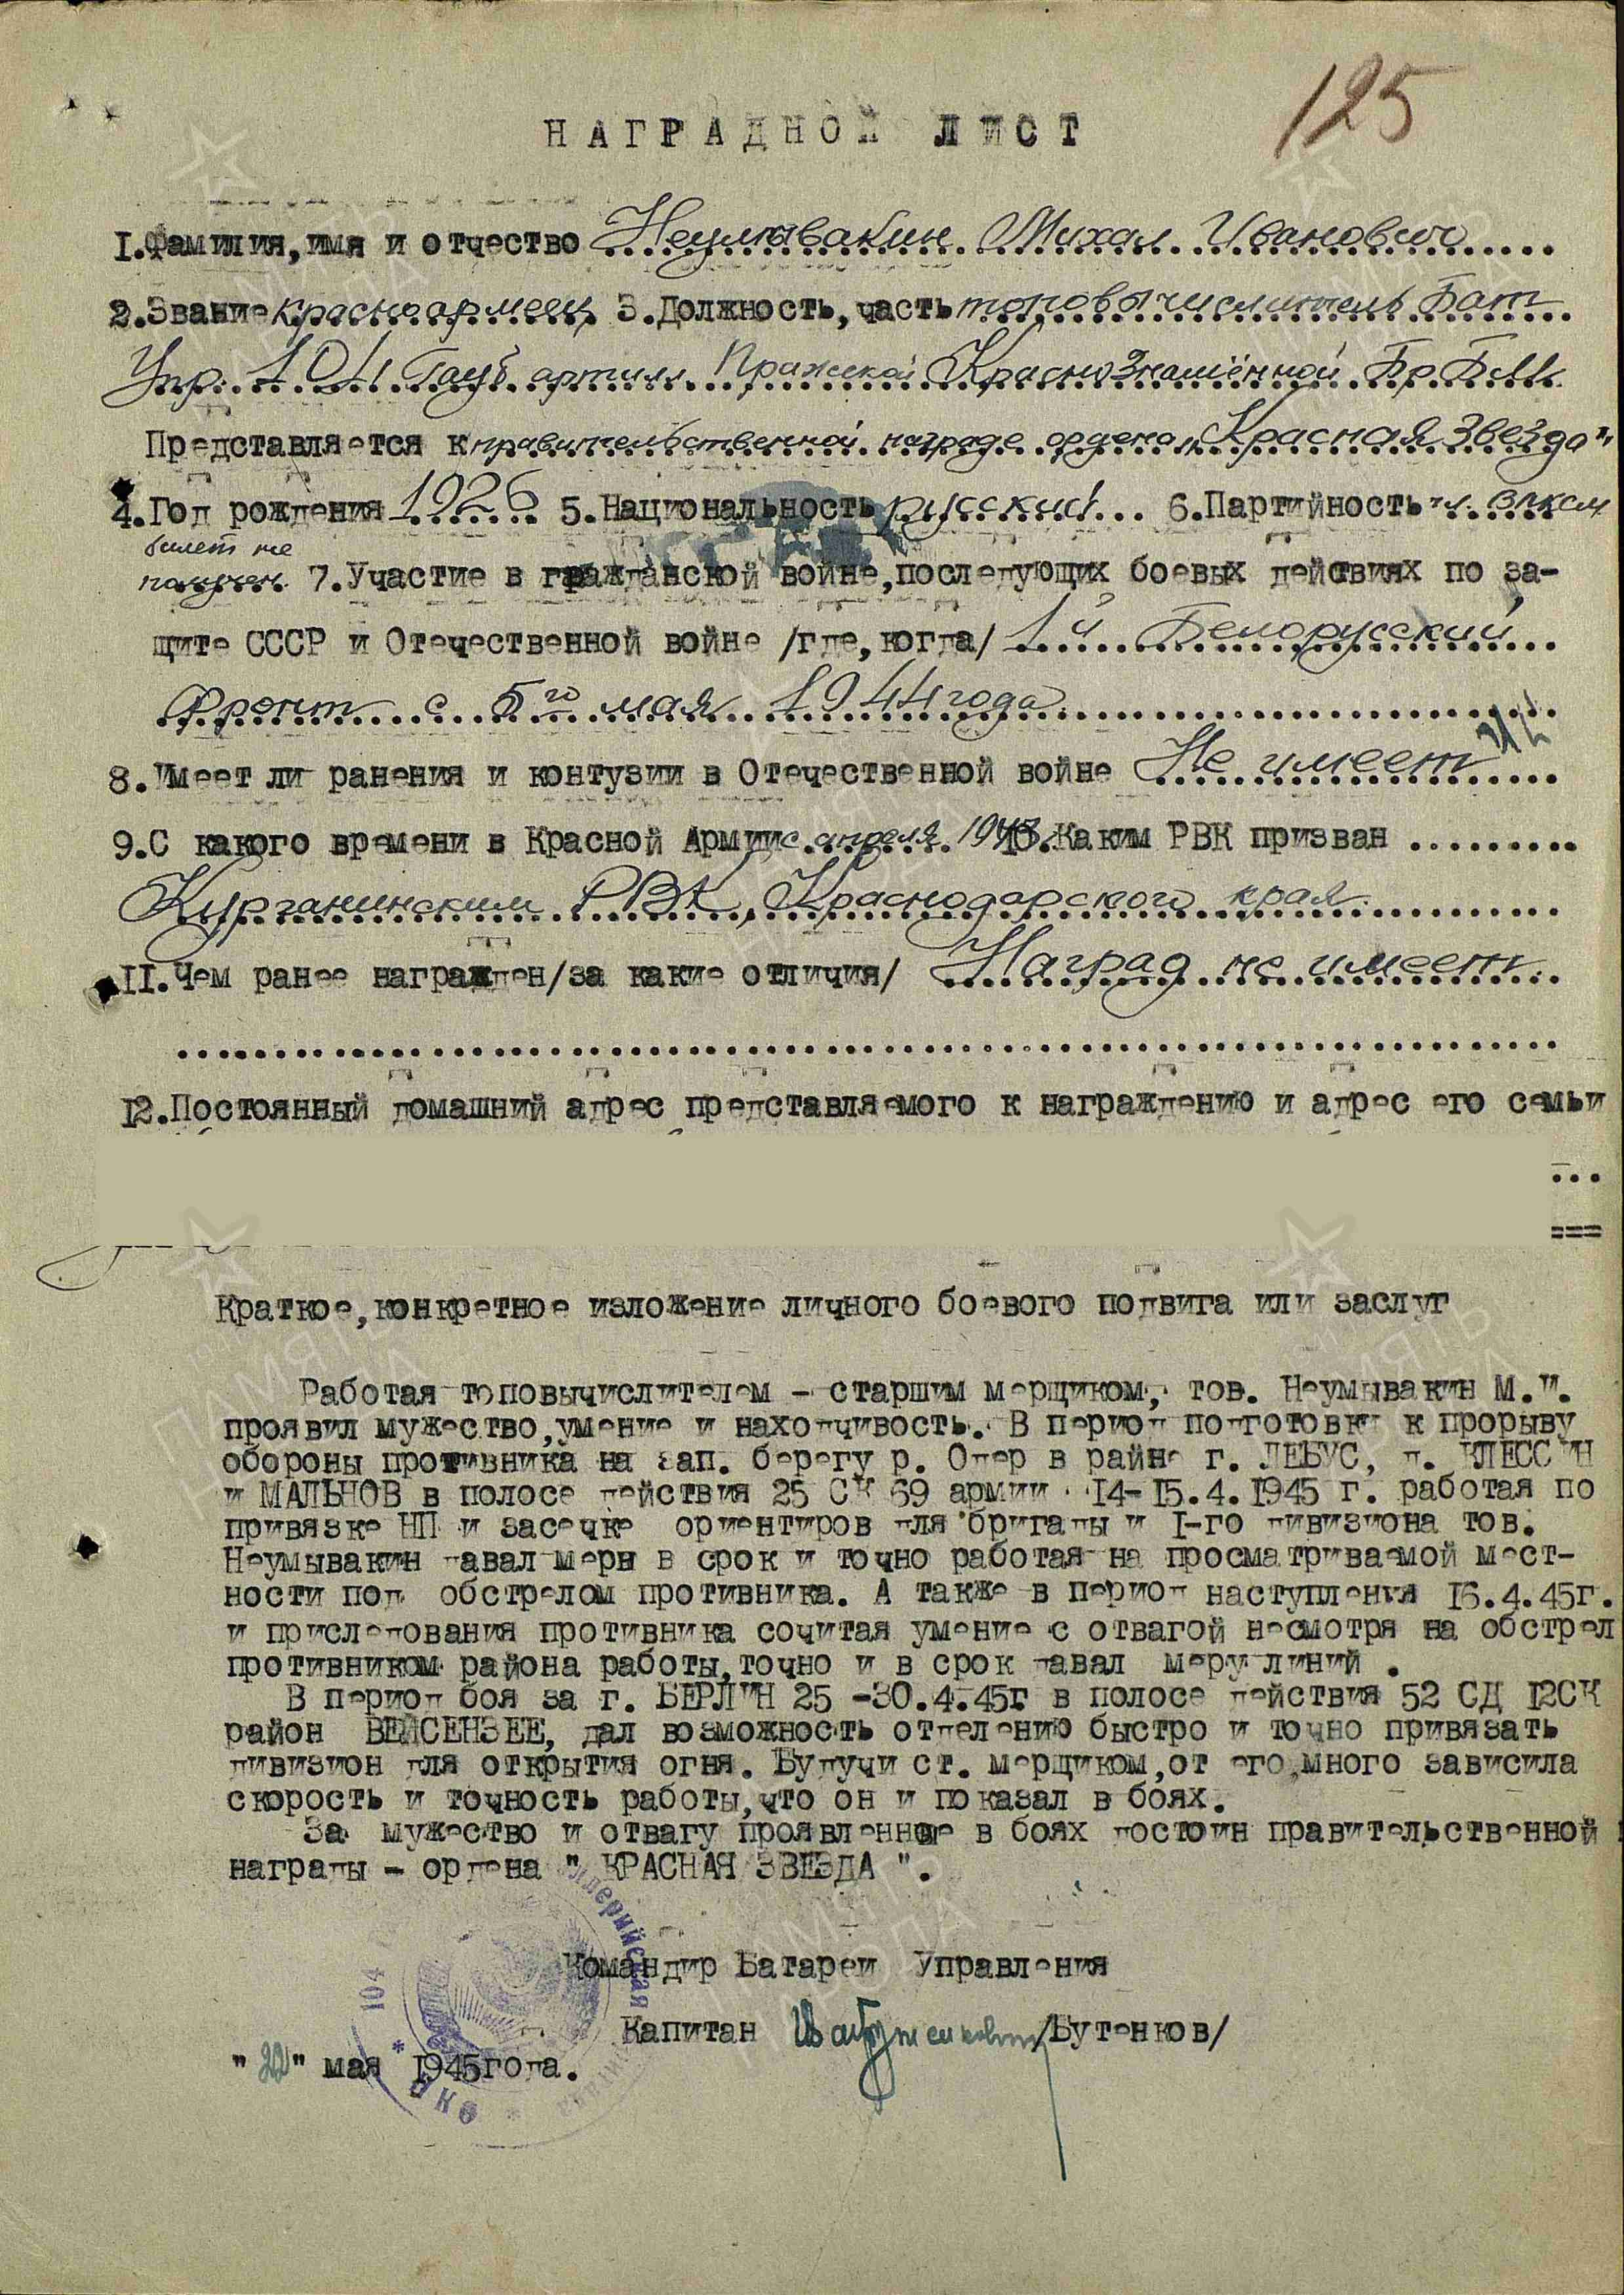 125
НАГРАДНОЙ ЛИСТ
1.Фамилия,имя и отчество Неумывакин Михал Иванович
2.Звание красноармеец 3.Должность,часть топовычислитель Бат
Упр. 104 Гауб. артилл. Пражской Краснознамённой Бр. Б.М.
Представляется к правительственной награде ордена „Красная Звезда"
4.Год рождения 1926 5.Национальность русский 6.Партийность чл. ВЛКСМ
билет не
получен. 7.Участие в гражданской войне,последующих боевых действиях по за-
щите СССР и Отечественной войне /где,когда/ 1й Белорусский
фронт с 5го мая 1944 года
8.Имеет ли ранения и контузии в Отечественной войне Не имеет
9.С какого времени в Красной Армии с апреля 1943 10.Каким РВК призван .........
Курганинским РВК, Краснодарского края.
11.Чем ранее награжден/за какие отличия/ Наград не имеет.
12.Постоянный домашний адрес представляемого к награждению и адрес его семьи
...
===
Краткое,конкретное изложение личного боевого подвига или заслуг
Работая топовычислителем - старшим мерщиком, тов. Неумывакин М.И.
проявил мужество,умение и находчивость. В период подготовки к прорыву
обороны противника на зап. берегу р. Одер в районе г. ЛЕБУС, д. КЛЕССИН
и МАЛЬНОВ в полосе действия 25 СК 69 армии 14-15.4.1945 г. работая по
привязке НП и засечке ориентиров для бригады и 1-го дивизиона тов.
Неумывакин давал меры в срок и точно работая на просматриваемой мест-
ности под обстрелом противника. А также в период наступления 16.4.45г.
и приследования противника сочитая умение с отвагой несмотря на обстрел
противником района работы,точно и в срок давал меру линий .
В период боя за г. БЕРЛИН 25 -30.4.45г в полосе действия 52 СД 12СК
район ВЕЙСЕНЗЕЕ, дал возможность отделению быстро и точно привязать
дивизион для открытия огня. Будучи ст. мерщиком,от его,много зависила
скорость и точность работы,что он и показал в боях.
За мужество и отвагу проявленные в боях достоин правительственной
награды - ордена " КРАСНАЯ ЗВЕЗДА ".
Командир Батареи Управления
Капитан /Бутенков/
"22" мая 1945года.
104
НКО